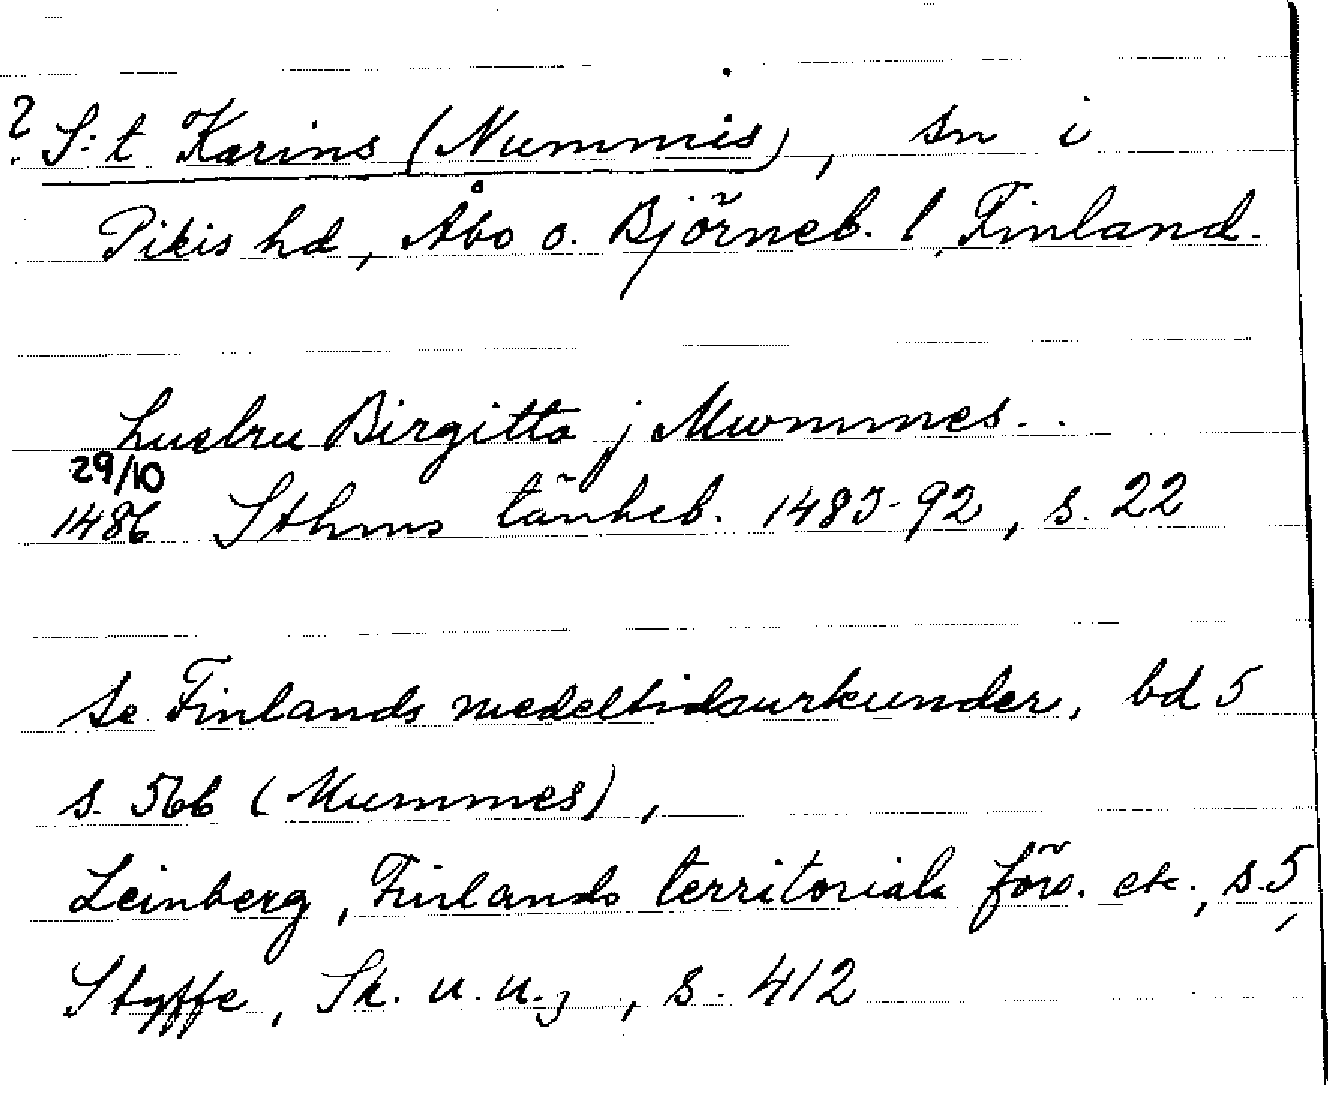 ? S:t Karins (Nummis), sn i
Pikis hd, Åbo o. Björneb. l, Finland.
husbru Birgitta j Mwmmes..
29/10
1486 Sthms tänkeb. 1483-92, s. 22
Se Finlands medeltidsurkunder, bd 5
s. 566 (Mummes),
Leinberg, Finlands territoriala förs. etc., s. 5,
Styffe, Sk. u. u.z, s. 412